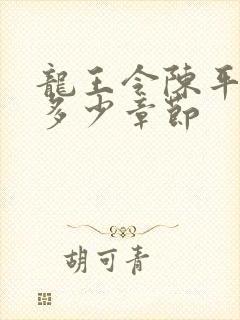 龍王令陳平
多少章節
胡可青